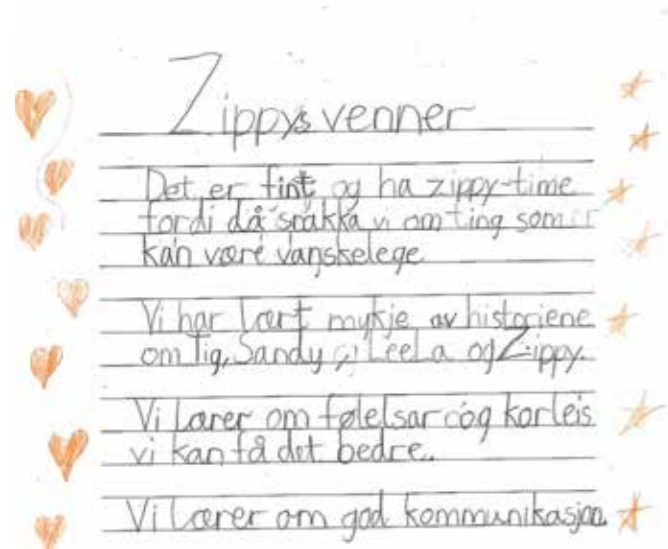 Zippys venner
Det er fint og ha zippy-time
fordi då snakka vi om ting som
kan være vanskelege
Vi har lært mykje av historiene
om Tig, Sandy, Leela og Zippy.
Vi lærer om følelsar og korleis
vi kan få det bedre.
Vi lærer om god kommunikasjon.